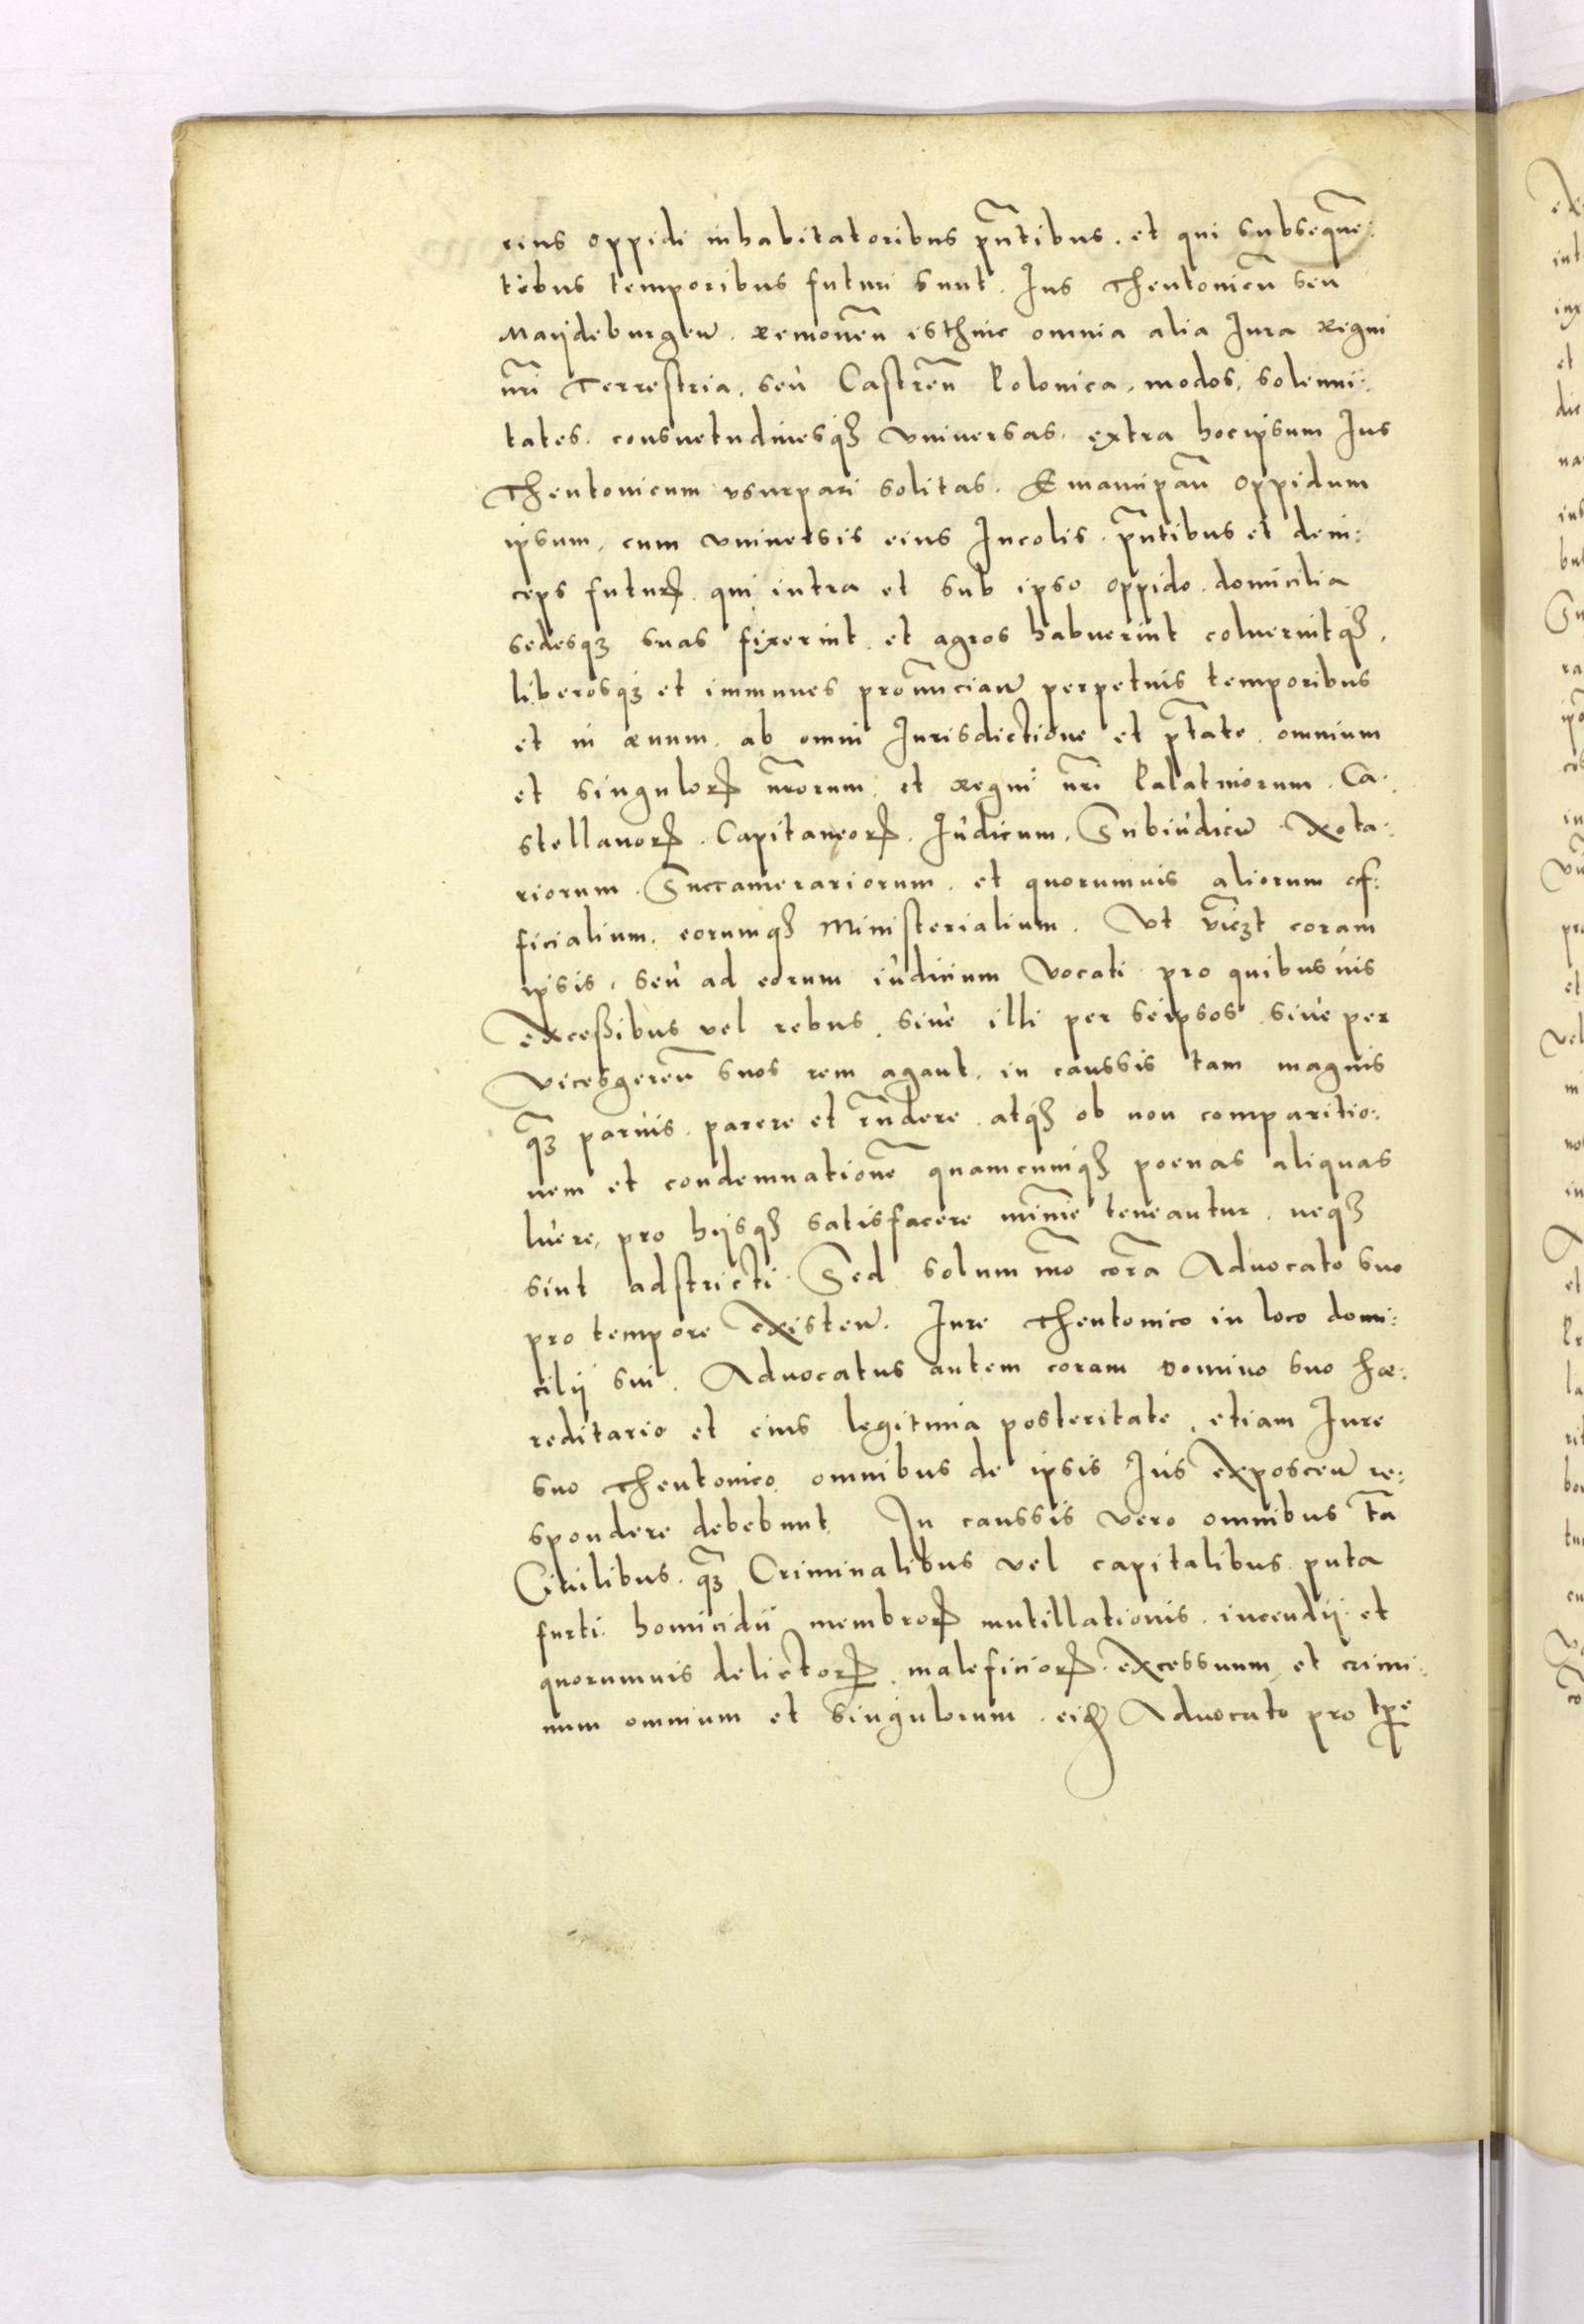 eius oppidi inhabitatoribus pñtibus. et qui subsequẽ:
tibus temporibus futuri sunt. Ius Theutonicũ seu
Maijdeburgen. removen̄ isthinc omnia alia Iura Regni
nr̃i Terrestria, seù Castren̄ Polonica, modos, solenni:
tates. consuetudinesqꝫ universas. extra hocipsum Ius
Theutonicum usurpari solitas. Emancipan̄ Oppidum
ipsum, cum universis eius Incolis. pñtibus et dein:
ceps futurꝝ. qui intra et sub ipso oppido. domicilia
sedesqꝫ suas fixerint. et agros habuerint coluerintqꝫ.
liberosqꝫ et immunes pronuncian̄ perpetuis temporibus
et in ævum. ab omni Iurisdictione et ptãte. omnium
et singulorꝝ nr̃orum. et Regni nr̃i Palatinorum. Ca:
stellanorꝝ. Capitaneorꝝ. Iùdicum. Subiùdicũ. Nota:
riorum. Succamerariorum. et quorumvis aliorum of:
ficialium. eorumqꝫ Ministerialium. Ut vĩcꝫt coram
ipsis, seù ad eorum iùdicium vocati pro quibusvis
Exceßibus vel rebus. sivè illi per seipsos. sivè per
Vicesgeren̄ suos rem agant. in caussis tam magnis
qꝫ parvis. parere et rñdere. atqꝫ ob non comparitio:
nem et condemnationẽ quamcumqꝫ poenas aliquas
luere, pro hijsqꝫ satisfacere minimè teneantur. neqꝫ
sint adstricti. Sed solum mõ corã Advocato suo
pro tempore existen̄. Iure Theutonico in loco domi:
cilij sui. Advocatus autem coram Domino suo hæ:
reditario et eius legitima posteritate, etiam Iure
suo Theutonico omnibus de ipsis Iùs exposcen̄ re:
spondere debebunt. In caussis vero omnibus tã
Civilibus. qꝫ Criminalibus vel capitalibus. puta
furti. homicidii membrorꝝ mutillationis. incendij. et
quorumvis delictorꝝ. maleficiorꝝ. excessuum et crimi:
num omnium et singulorum. eidꝫ Advocato pro tpe